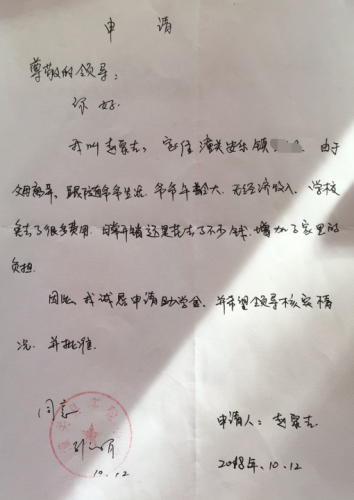 申 请
尊敬的领导：
你 好.
我叫赵 吉，家住潼关安乐镇 由于
父母离异，跟随爷爷生活，爷爷年龄大，无经济收入，学校
免去了很多费用，日常开销还是花去了不少钱，增加了家里的
负担.
因此，我诚恳申请助学金，并希望领导核实情
况，并批准.
同意
10.12
申请人：赵 吉.
2018年、10.12